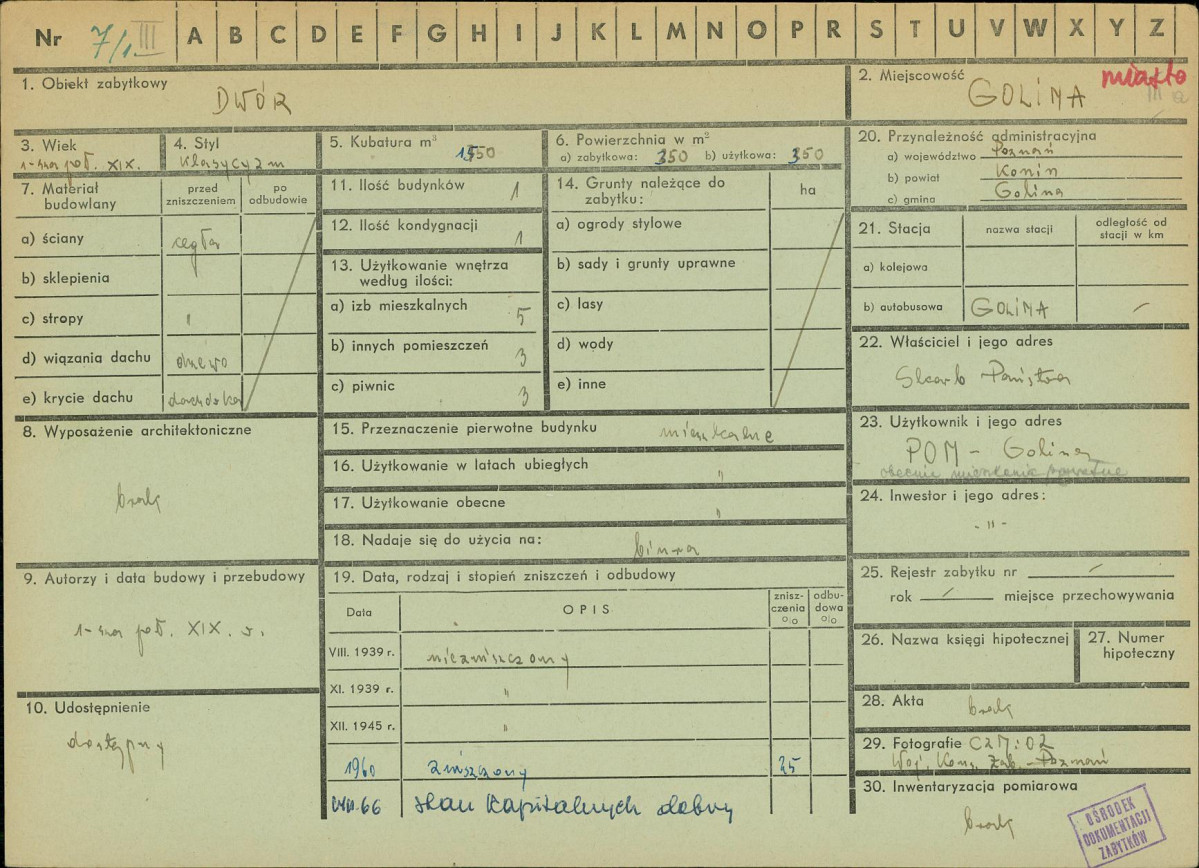 Nr 7/1 III A B C D E F G H I J K L M N O P R S T U V W X Y Z
1. Obiekt zabytkowy
DWÓR
2. Miejscowość
GOLINA
miasto
3. Wiek
1-sza poł. XIX.
4. Styl
Klasycyzm
5. Kubatura m³
6. Powierzchnia w m²
a) zabytkowa: 350 b) użytkowa: 350
20. Przynależność administracyjna
a) województwo Poznań
b) powiat Konin
c) gmina Golina
7. Materiał budowlany
przed zniszczeniem
po odbudowie
a) ściany cegła
b) sklepienia
c) stropy "
d) wiązania dachu drzewo
e) krycie dachu dachówka
11. Ilość budynków 1
12. Ilość kondygnacji 1
13. Użytkowanie wnętrza według ilości:
a) izb mieszkalnych 5
b) innych pomieszczeń 3
c) piwnic 3
14. Grunty należące do zabytku:
ha
a) ogrody stylowe
b) sady i grunty uprawne
c) lasy
d) wody
e) inne
21. Stacja
nazwa stacji
odległość od stacji w km
a) kolejowa
b) autobusowa GOLINA -
22. Właściciel i jego adres
Skarb Państwa
8. Wyposażenie architektoniczne
brak
15. Przeznaczenie pierwotne budynku mieszkalne
16. Użytkowanie w latach ubiegłych "
17. Użytkowanie obecne "
18. Nadaje się do użycia na: biura
23. Użytkownik i jego adres
POM - Golina
obecnie mieszkania prywatne
24. Inwestor i jego adres:
- " -
9. Autorzy i data budowy i przebudowy
1-sza poł. XIX. w.
19. Data, rodzaj i stopień zniszczeń i odbudowy
Data
OPIS
znisz-czenia %
odbu-dowa %
VIII. 1939 r. niezniszczony
XI. 1939 r. "
XII. 1945 r. "
1960 zniszczony 25
VIII.66 stan kapitalnych dobry
25. Rejestr zabytku nr -
rok - miejsce przechowywania
26. Nazwa księgi hipotecznej
27. Numer hipoteczny
10. Udostępnienie
dostępny
28. Akta
brak
29. Fotografie CZM:02
Woj. Kons. Zab. - Poznań
30. Inwentaryzacja pomiarowa
brak
OŚRODEK
DOKUMENTACJI
ZABYTKÓW